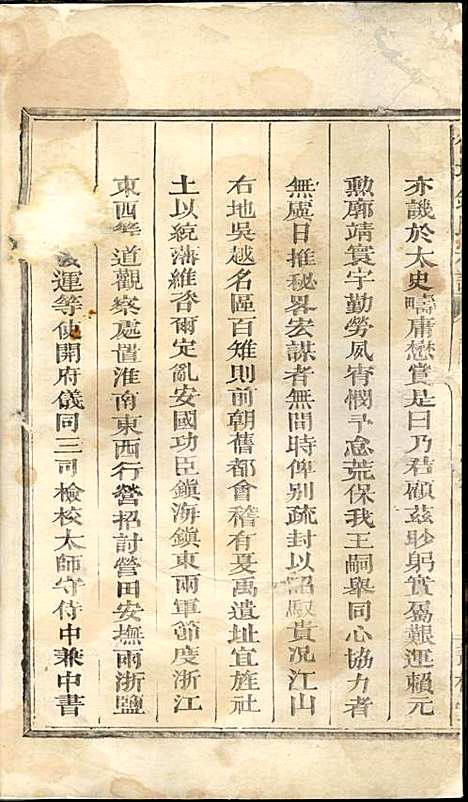 亦譏於太史疇庸懋賞是曰乃君顧茲眇躬實屬艱運賴元
勲廓靖寰宇勤勞夙宵憫予怠荒保我王嗣舉同心協力者
無虛日推秘畧宏謀者無間時俾別疏封以詔馭貴况江山
右地吳越名區百雉則前朝舊都會稽有夏禹遺址宜旌社
土以統藩維咨爾定亂安國功臣鎮海鎮東兩軍節度浙江
東西等道觀察處置淮南東西行營招討營田安撫兩浙鹽
運等使開府儀同三司檢校太師守侍中兼中書